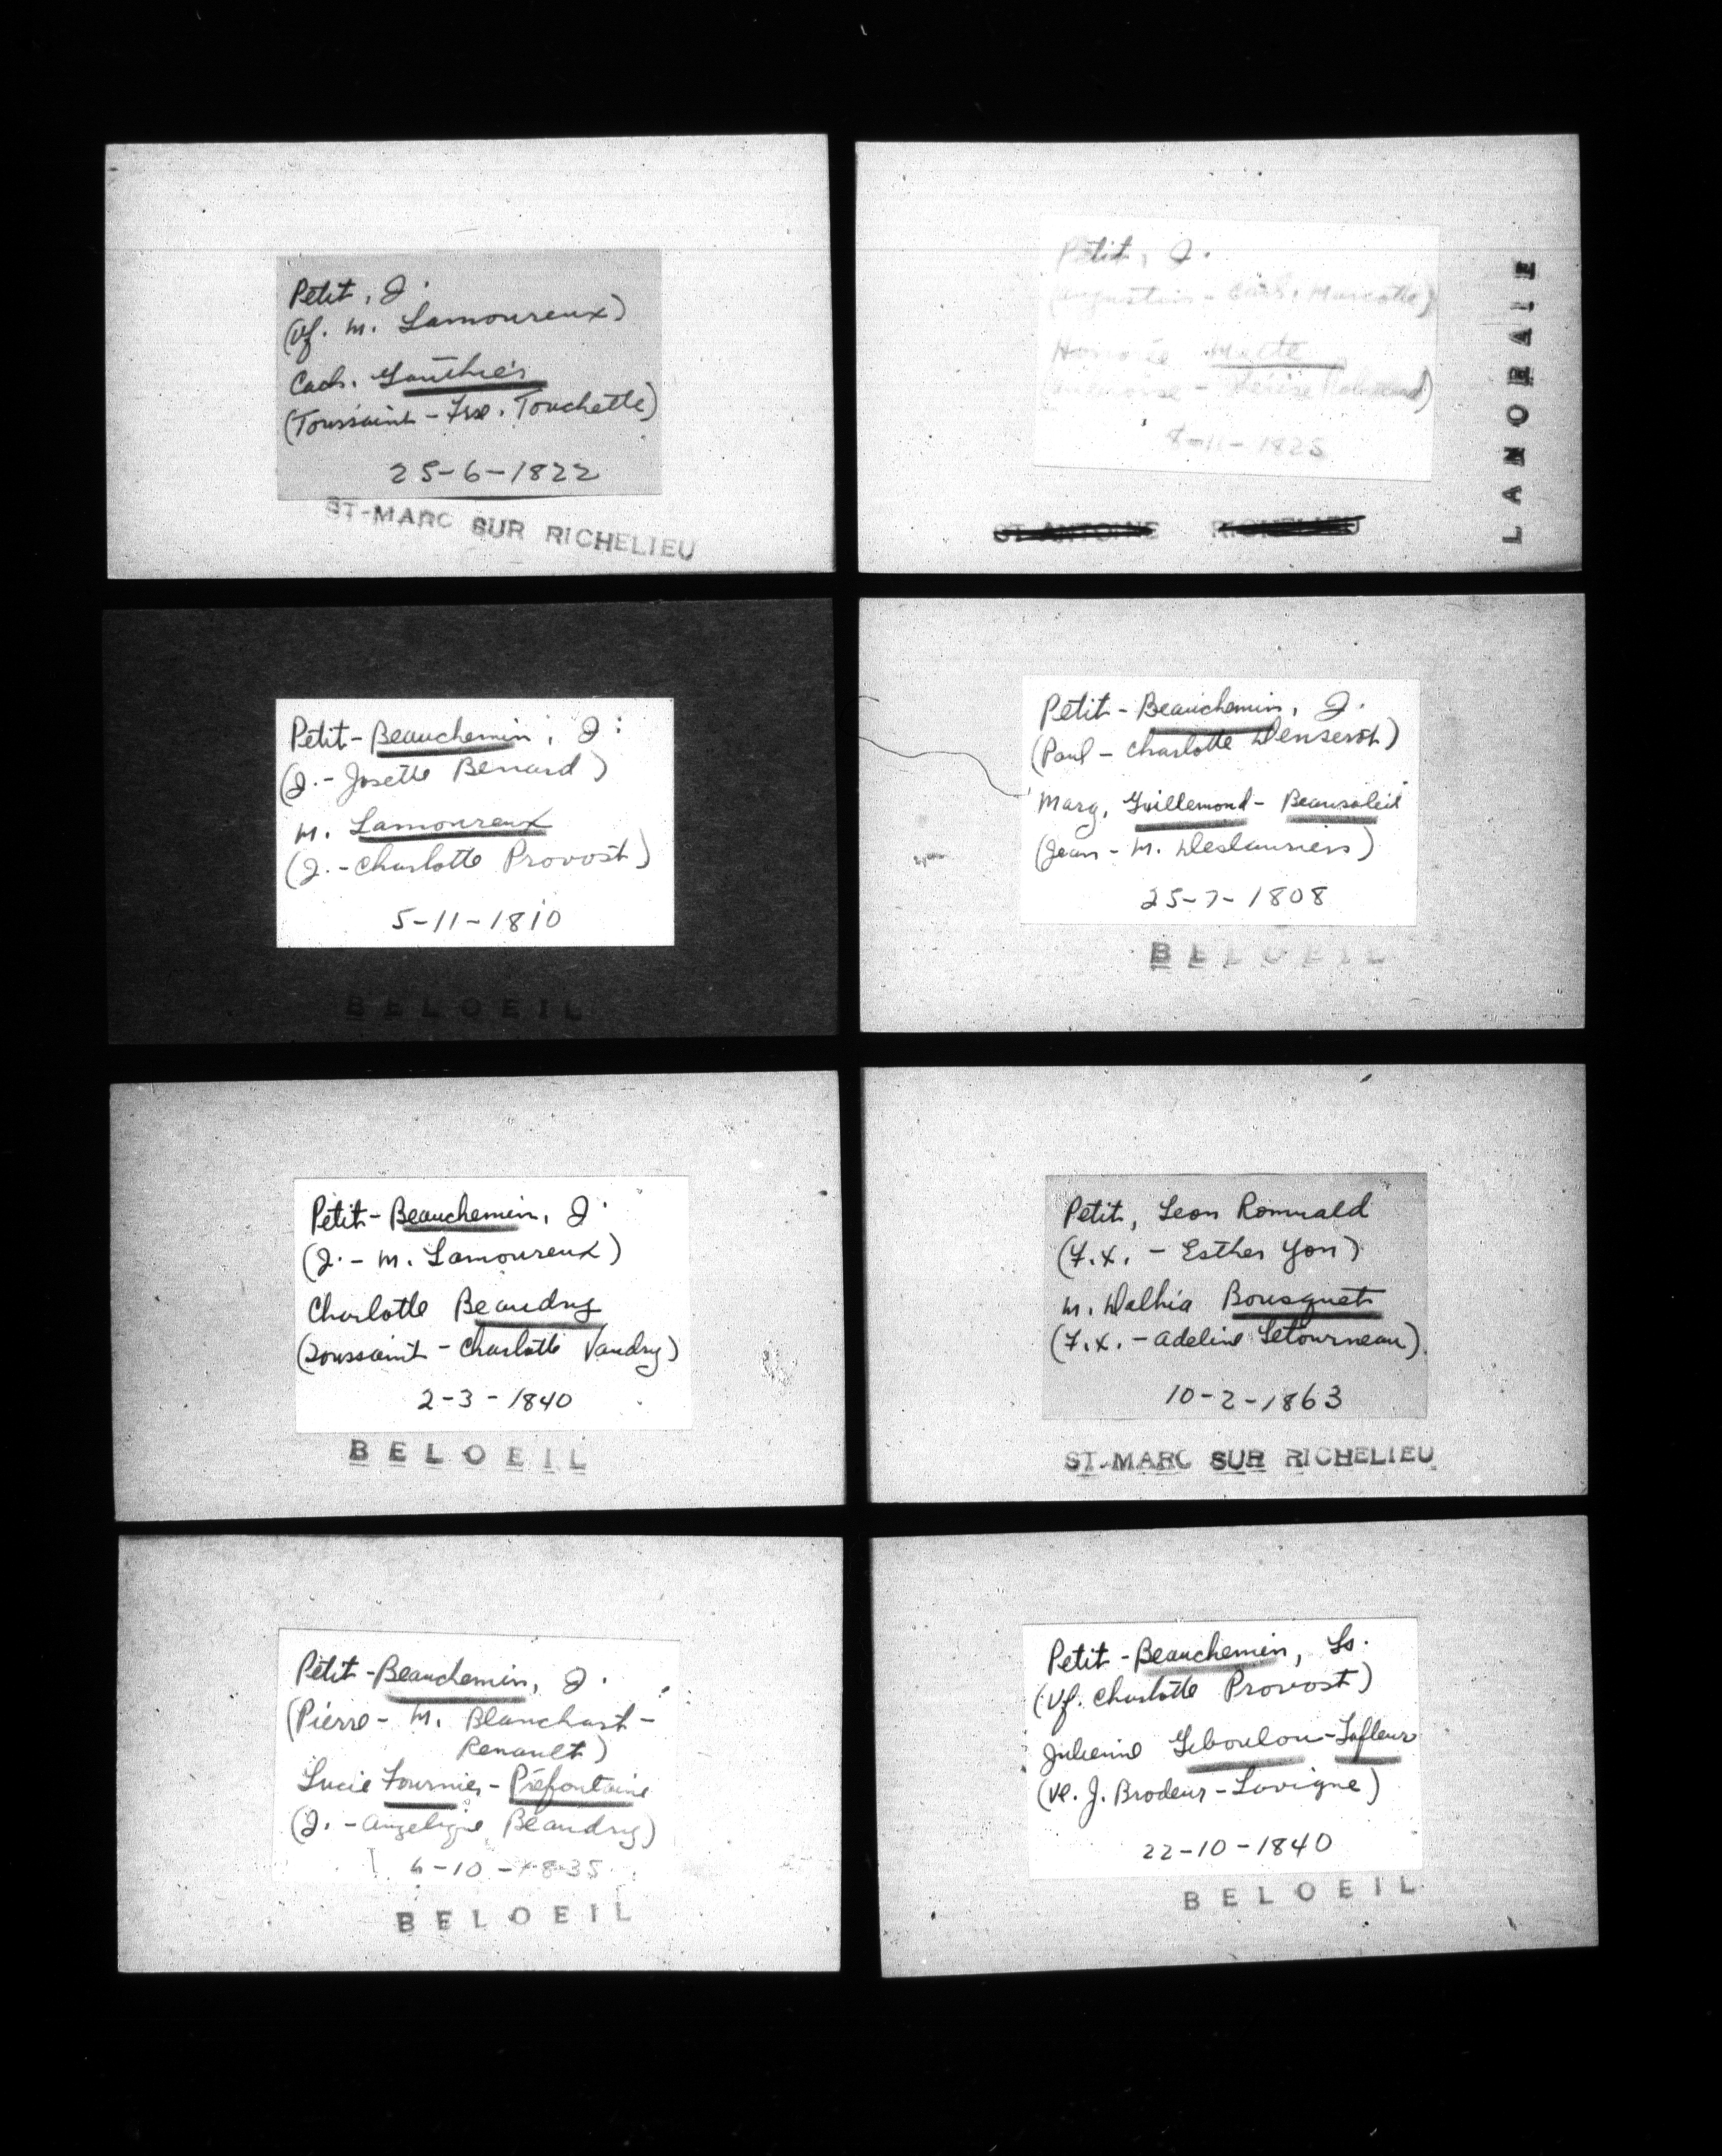 Petit, J.
(Vf. M. Lamoureux)
Cath. Gauthier
(Toussaint - Frse. Touchette)
25-6-1822
ST-MARC SUR RICHELIEU
Petit, J.
(Augustin - Cath. Marcotte)
Mette
8-11-1825
ST ANTOINE RICHELIEU
LANORAIE
Petit-Beauchemin, J.
(J. - Josette Benard)
M. Lamoureux
(J. - Charlotte Provost)
5-11-1810
BELOEIL
Petit-Beauchemin, J.
(Paul - Charlotte)
Marg. Guillemond - Beausoleil
(Jean - M. Deslauriers)
25-7-1808
BELOEIL
Petit-Beauchemin, J.
(J. - M. Lamoureux)
Charlotte Beaudry
(Toussaint - Charlotte Vandry)
2-3-1840
BELOEIL
Petit, Leon Romuald
(F.X. - Esther Yon)
M. Dalhia Bousquet
(F.X. - Adeline Letourneau)
10-2-1863
ST-MARC SUR RICHELIEU
Petit-Beauchemin, J.
(Pierre - M. Blanchart-
Renault)
Lucie Fournier - Préfontaine
(J. - Angelique Beaudry)
6-10-1835
BELOEIL
Petit-Beauchemin, Ls.
(Vf. Charlotte Provost)
Julienne Geboulou-Lafleur
(Ve. J. Brodeur-Lavigne)
22-10-1840
BELOEIL